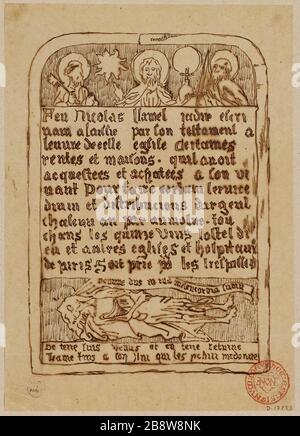 Feu Nicolas flamel jadiz escri
vain a laissie par son testament a
leuvre de ceste eglise certames
rentes et maisons. quil avoit
acquestees et achatees a son vi
vant pour faire certain service
divin et distribucions dargent
chascun an par aumosne. tou
chans les quinze vins lostel di
eu et autres eglises et hospitaux
de paris Soit prie les trespasses
De terre suis venus et en terre
a ihu qui les
alamy
D.17883
Image ID: 2BW8WNK
www.alamy.com